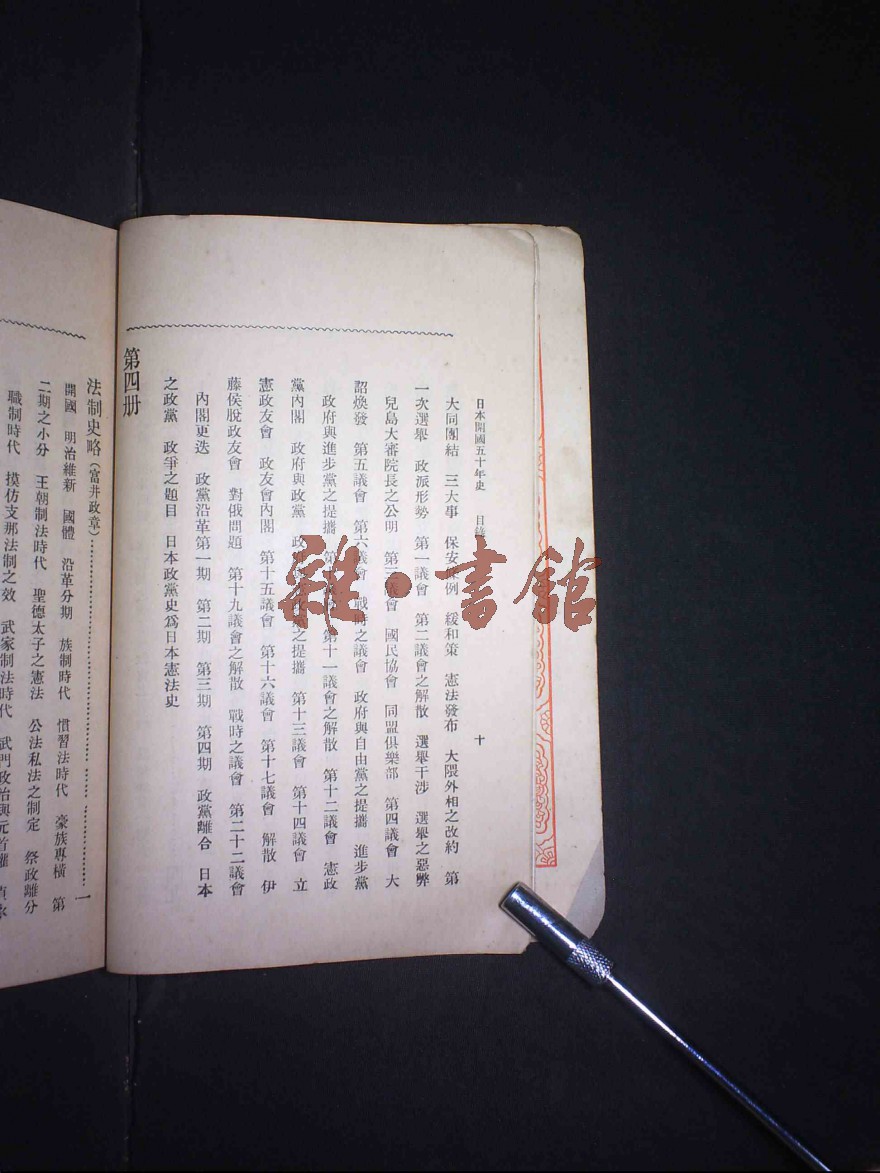 日本開國五十年史 目錄 十
大同團結 三大事 保安條例 緩和策 憲法發布 大隈外相之改約 第
一次選舉 政派形勢 第一議會 第二議會之解散 選舉干涉 選舉之惡弊
兒島大審院長之公明 第三議會 國民協會 同盟俱樂部 第四議會 大
詔煥發 第五議會 第六議會 戰時之議會 政府與自由黨之提攜 進步黨
政府與進步黨之提攜 第十一議會之解散 第十二議會 憲政
黨內閣 政府與政黨 之提攜 第十三議會 第十四議會 立
憲政友會 政友會內閣 第十五議會 第十六議會 第十七議會 解散 伊
藤侯脫政友會 對俄問題 第十九議會之解散 戰時之議會 第二十二議會
內閣更迭 政黨沿革第一期 第二期 第三期 第四期 政黨離合 日本
之政黨 政爭之題目 日本政黨史爲日本憲法史
第四册
法制史略(富井政章)……………………一
開國 明治維新 國體 沿革分期 族制時代 慣習法時代 豪族專橫 第
二期之小分 王朝制法時代 聖德太子之憲法 公法私法之制定 祭政離分
職制時代 摸仿支那法制之效 武家制法時代 武門政治與元首離
雜·書館